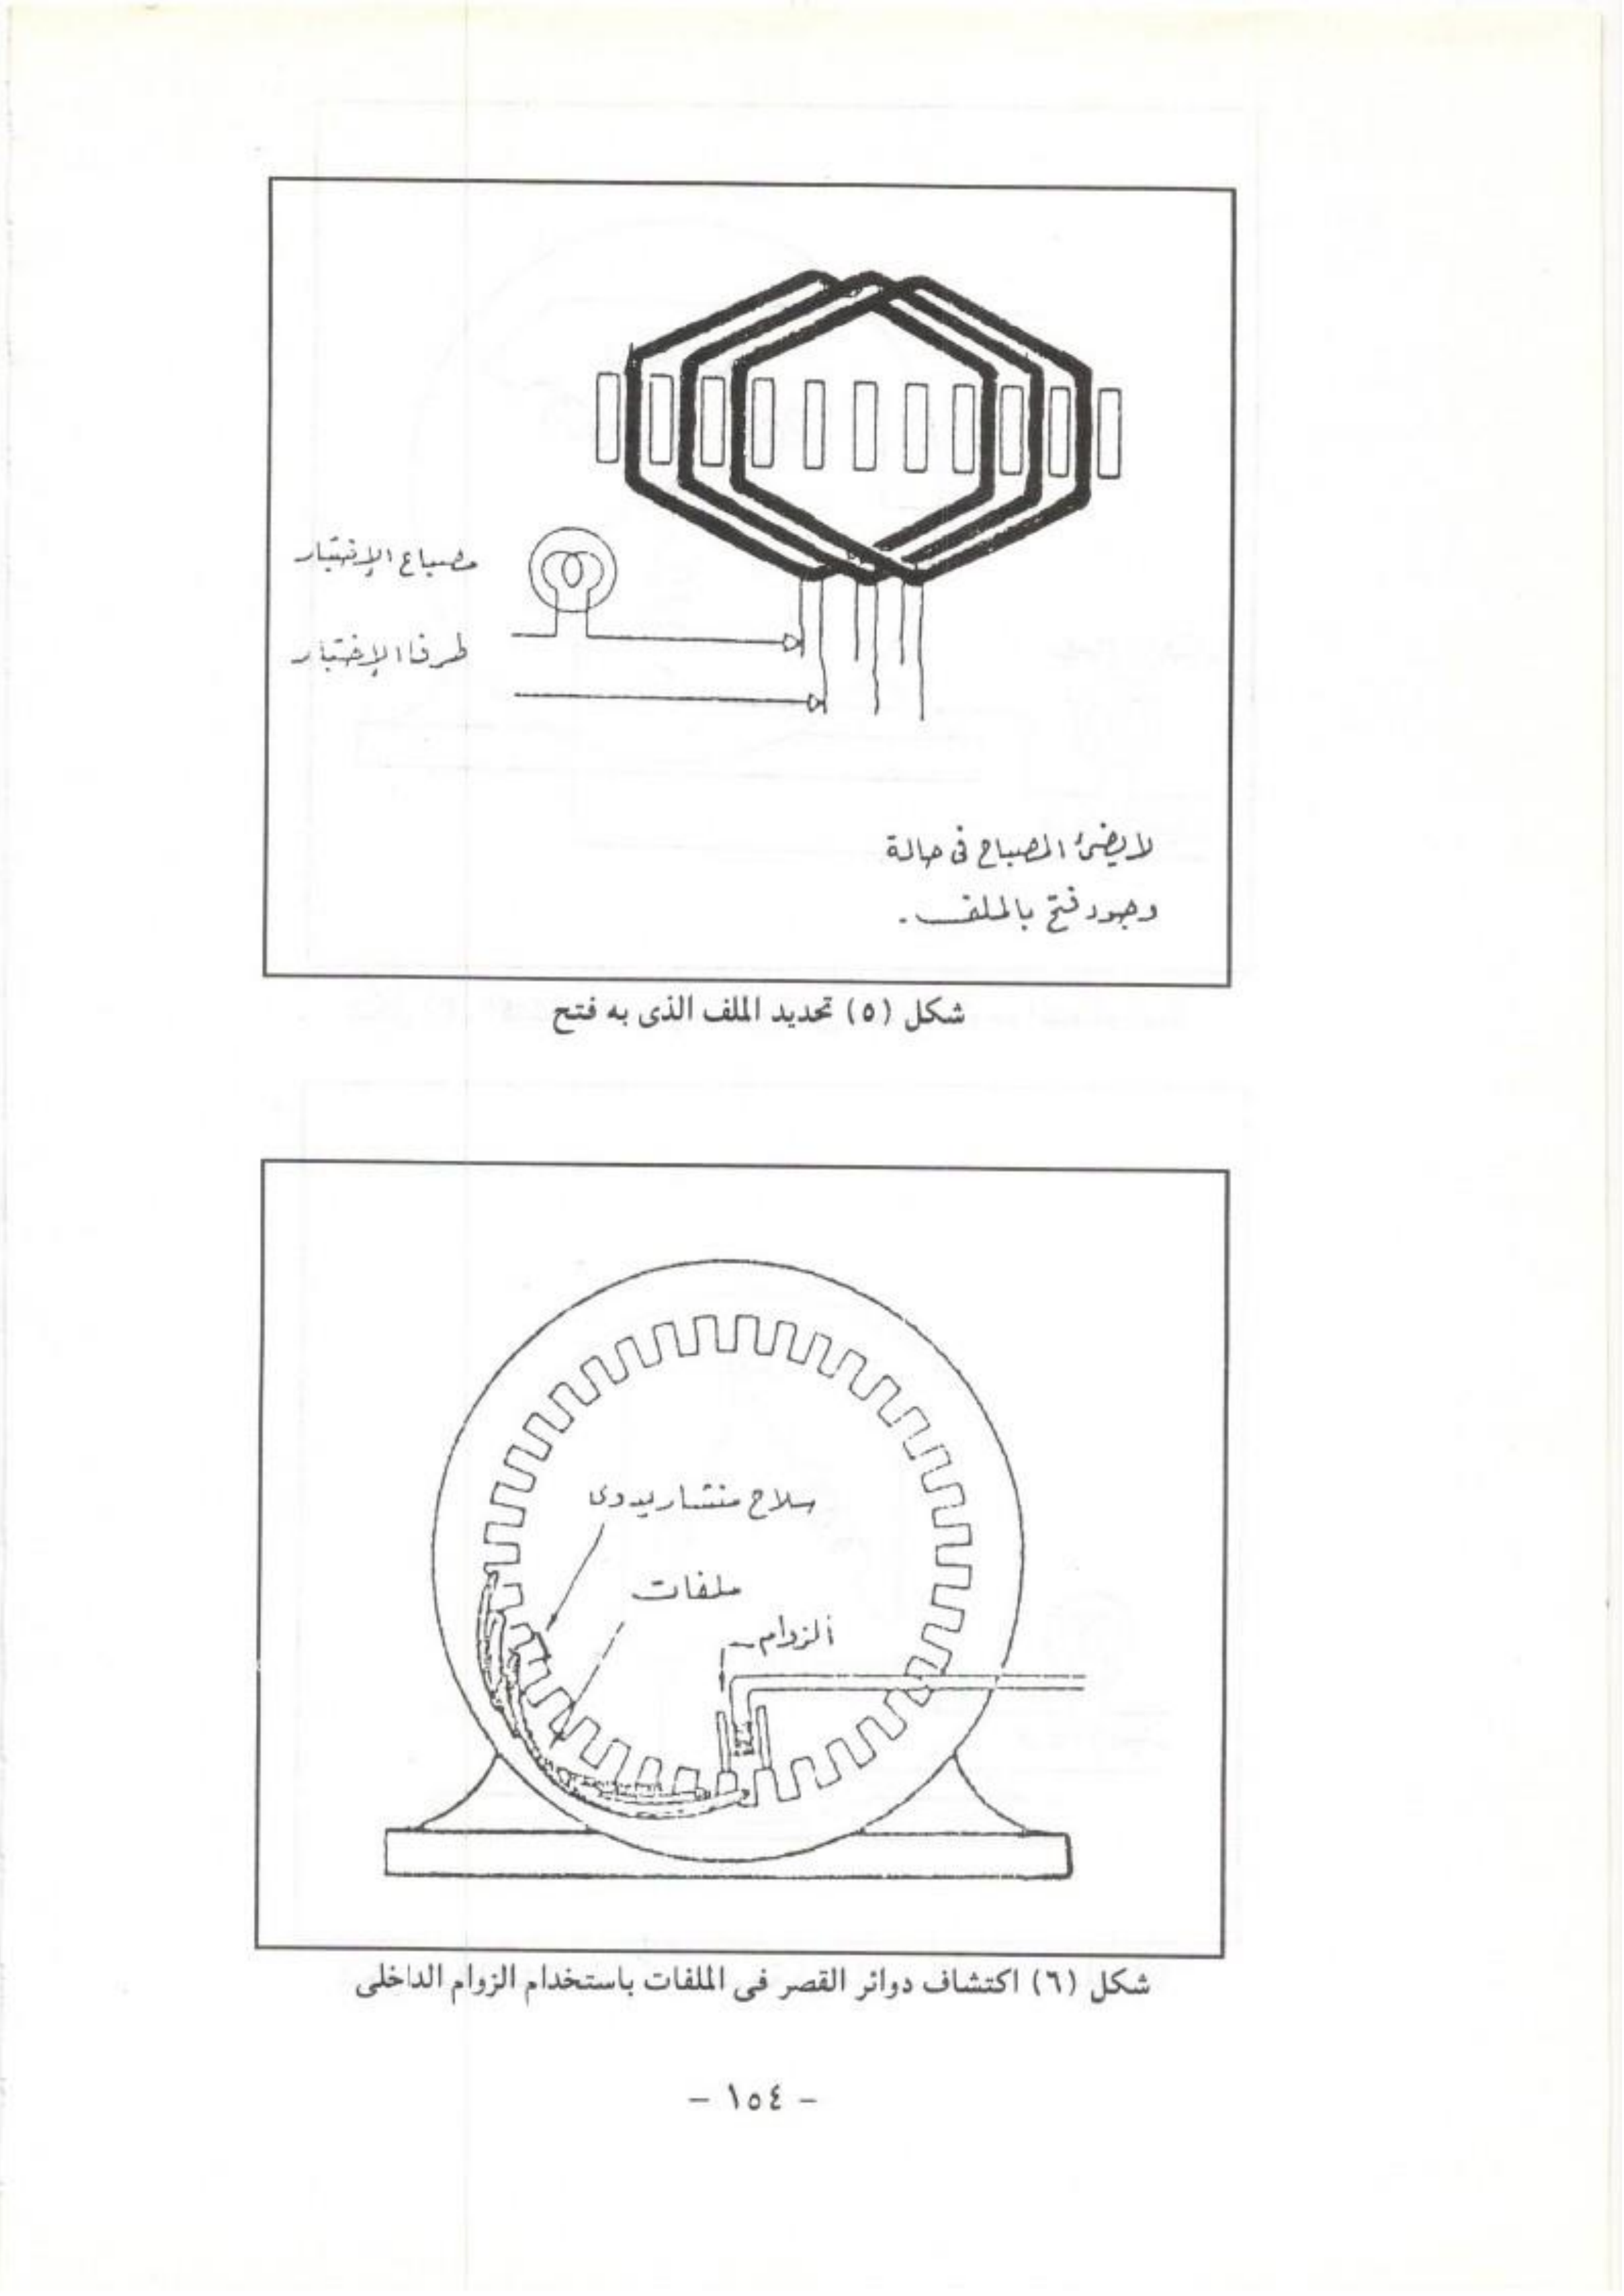 مصباح الإختبار
طرفا الإختبار
لا يضئ المصباح فى حالة
وجود فتح بالملف .
شكل (٥) تحديد الملف الذى به فتح
سلاح منشار يدوى
ملفات
الزوام
شكل (٦) اكتشاف دوائر القصر فى الملفات باستخدام الزوام الداخلى
– ١٥٤ –